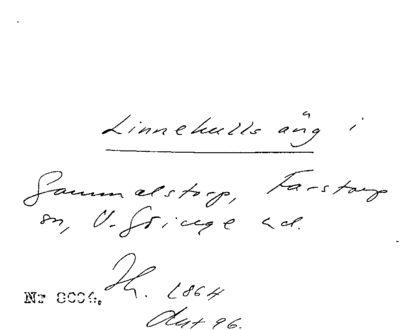 Linnekulls äng i
Gammalstorp, Farstorp
sn, V. Göinge hd.
Th. 1864
Nr 8006.
Avt 96.